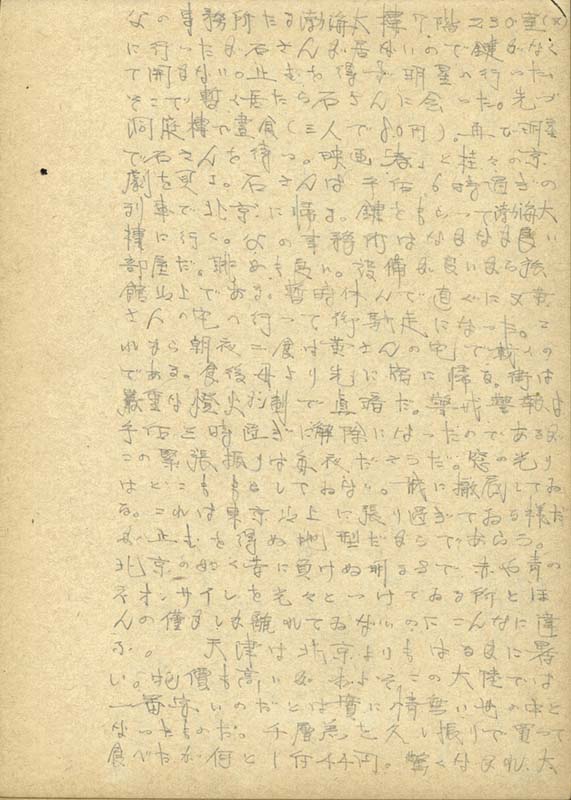 父の事務所たる渤海大樓7階230室(×)
に行ったが石さんが居ないので鍵がなく
て開まない。止むを得ず明星の行った。
そこで暫く居たら石さんに会った。先づ
洞庭樓で晝食(三人で80円)。再び明星
で石さんを待つ。映画「春」と桂々の京
劇を見る。石さんは午后6時過ぎの
列車で北京に帰る。鍵をもらって渤海大
樓に行く。父の事務所はなかなか良い
部屋だ。眺めも良い。設備が良いから旅
館以上である。暫時休んで直ぐに又黄
さんの宅へ行って御馳走になった。こ
れから朝夜二食は黄さんの宅で戴くの
である。食後母より先に宿に帰る。街は
嚴重な燈火管制で真暗だ。警戒警報は
午后三時過ぎに解除になったのであるが
この緊張振りは毎夜だそうだ。窓の光り
はどこももとしておない。誠に徹底してゐ
る。これは東京以上に張り過ぎておる様だ
が止むを得ぬ地型だからであらう。
北京の如く昔に負けぬ明るさで赤や青の
ネオンサインを光々とつけてゐる所とほ
んの僅かしか離れてゐないのにこんなに違
ふ。 天津は北京よりもはるかに暑
い。物價も高いがおよそこの大陸では
一番安いのだとは實に情無い世の中と
なったものだ。千層糕を久し振りで買って
食べたが何と1斤44円。驚くなかれ、大